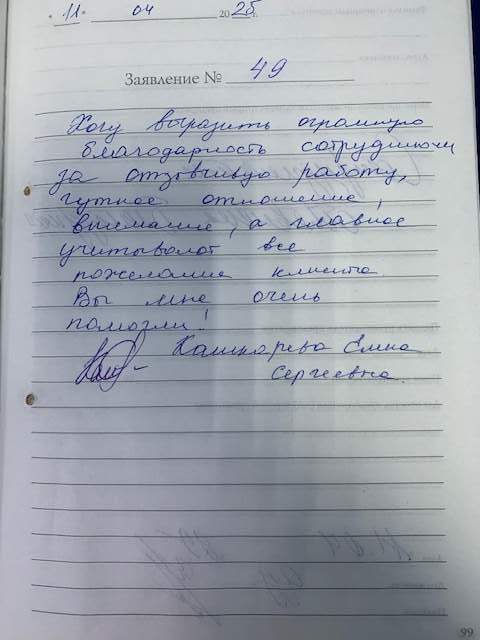 " 11 " 04 2025 г.
Заявление № 49
Хочу выразить огромную
благодарность сотруднику
за отзывчивую работу,
чуткое отношение,
внимание, а главное
учитывают все
пожелание клиента.
Вы мне очень
помогли!
Кашкарева Елена
Сергеевна.
99